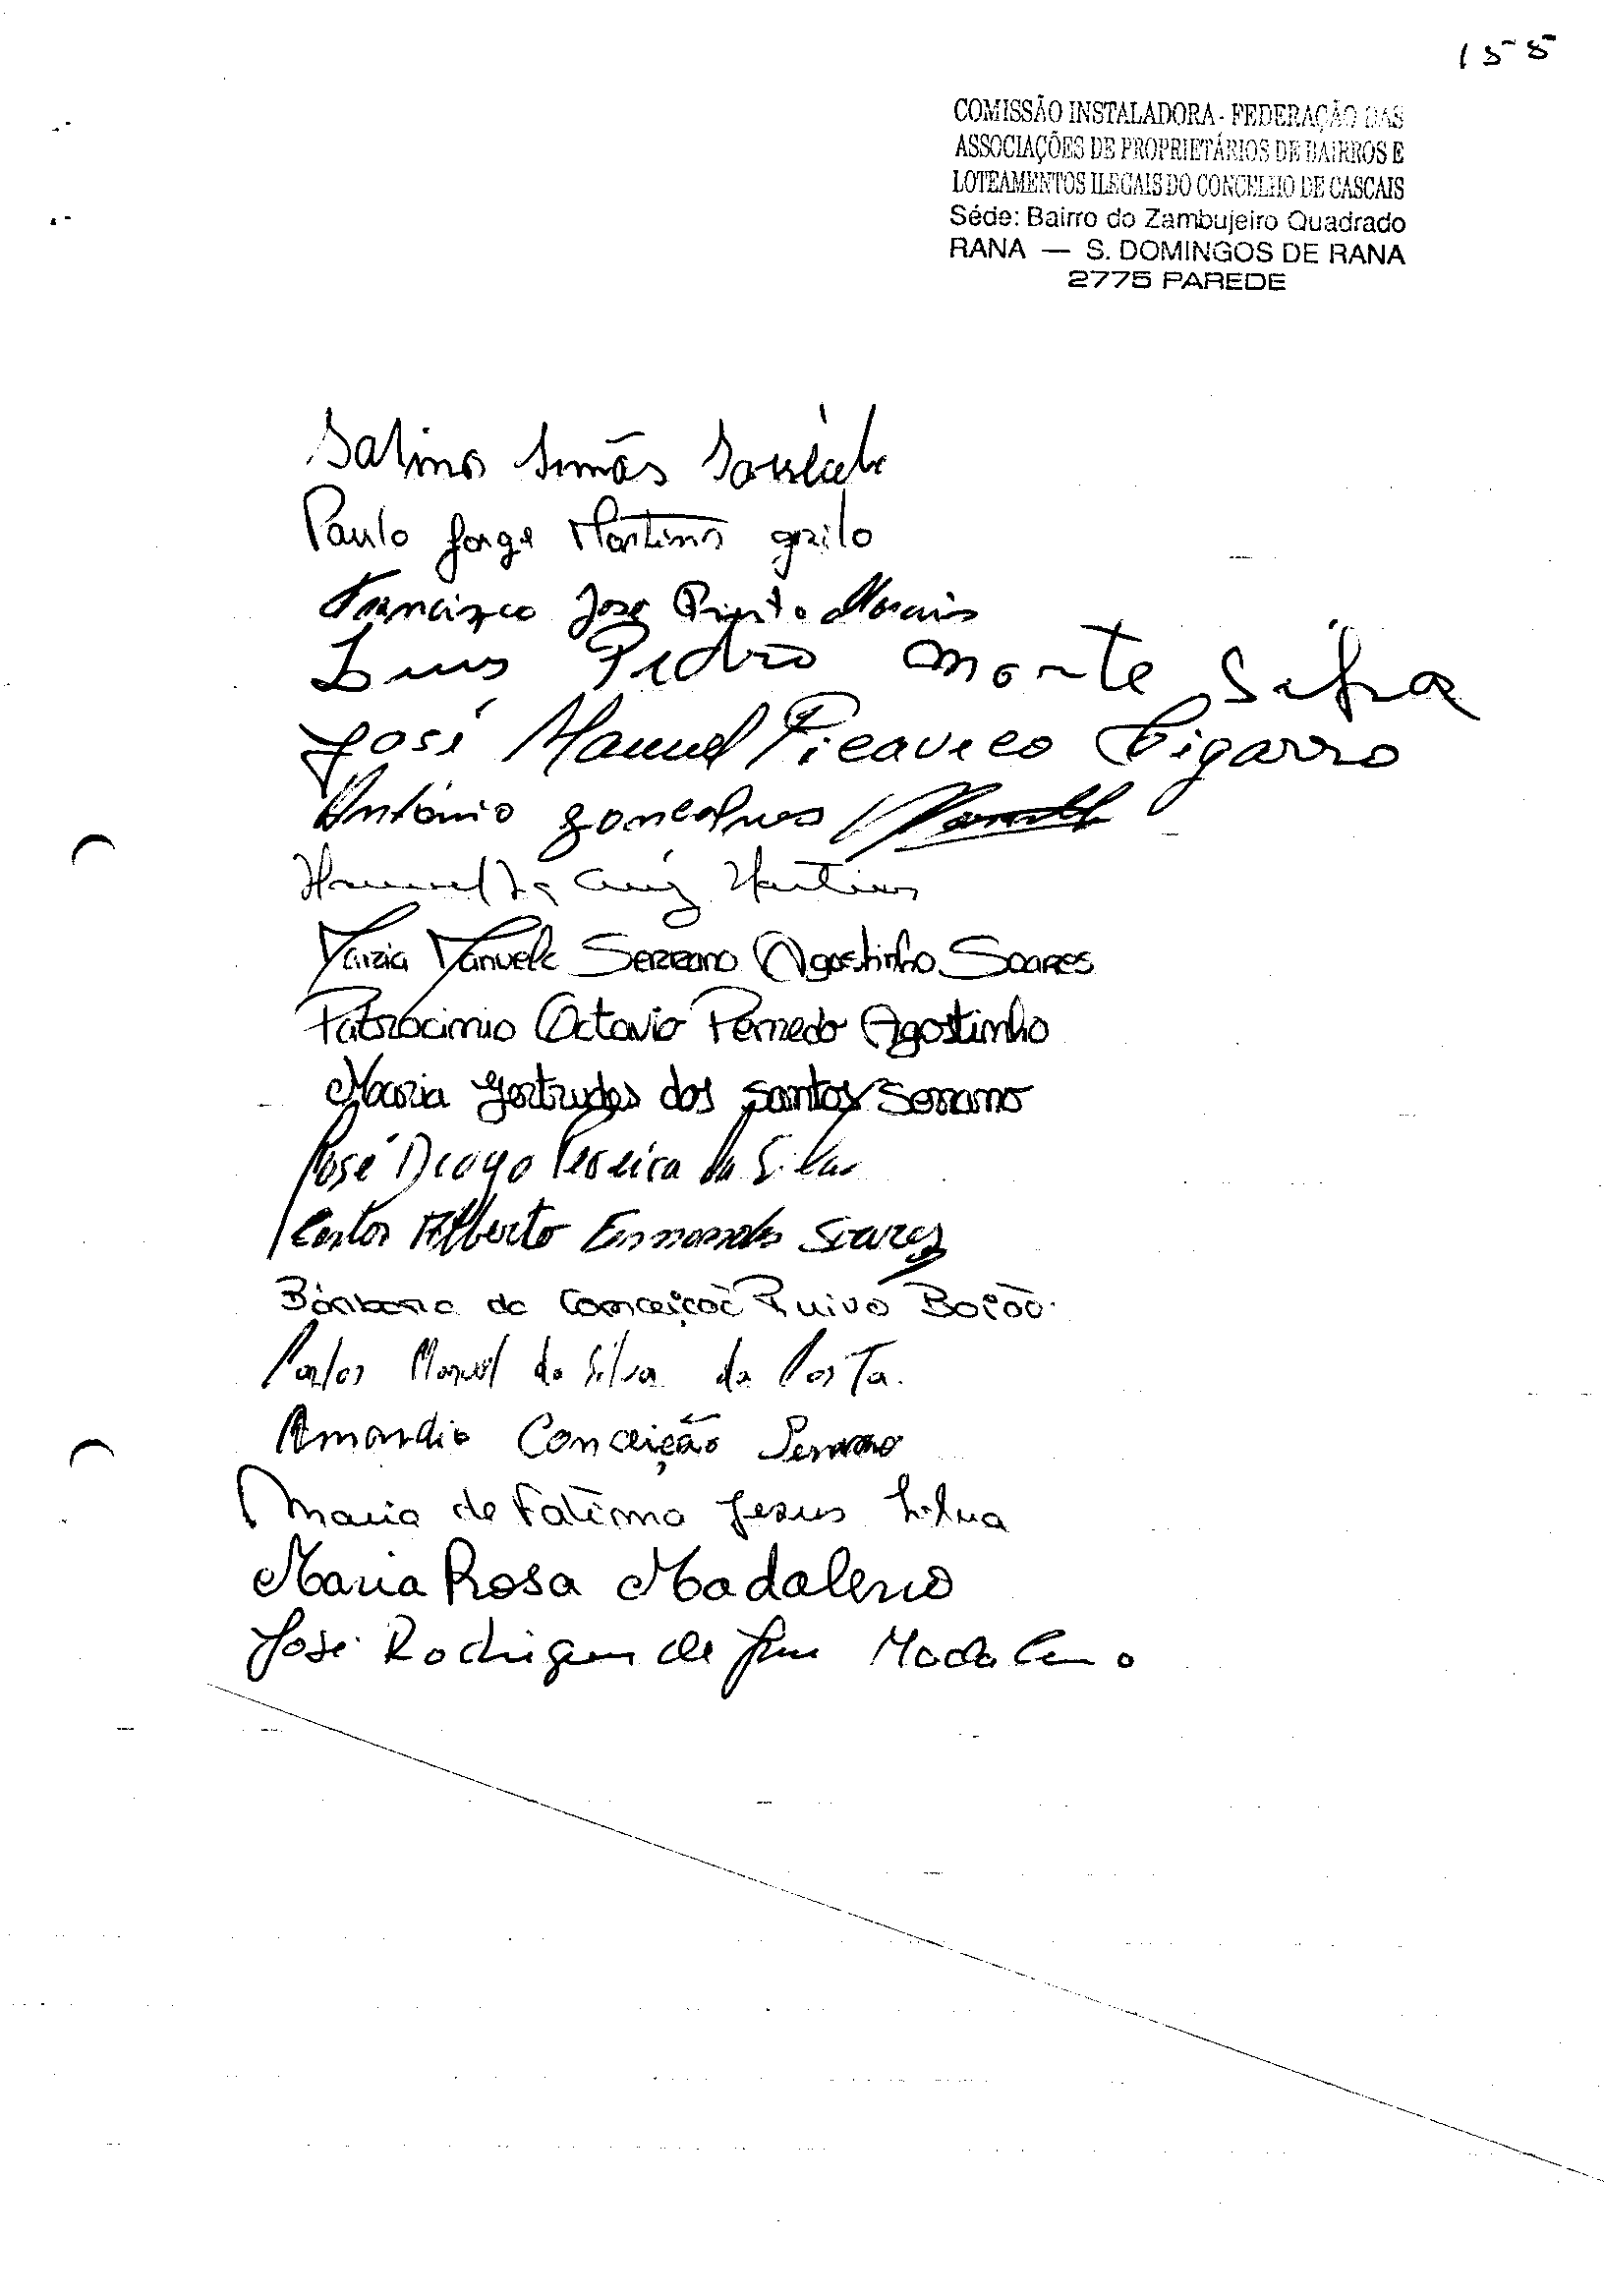 155
COMISSÃO INSTALADORA - FEDERAÇÃO DAS
ASSOCIAÇÕES DE PROPRIETÁRIOS DE BAIRROS E
LOTEAMENTOS ILEGAIS DO CONCELHO DE CASCAIS
Séde: Bairro do Zambujeiro Quadrado
RANA — S. DOMINGOS DE RANA
2775 PAREDE
Simás
Paulo Jorge Martins grilo
Francisco José Pinto Morais
Luis Pedro monte Silva
José Manuel Picaveco Cigarro
António gonçalves
Manuel da Martins
Maria Manuela Serrano Agostinho Soares
Patrocinio Octavio Penedo Agostinho
Maria gertrudes dos santos Serrano
José Diogo Pereira da Silva
Carlos Alberto Fernandes Soares
Bárbara da Conceição Ruivo Boião
Carlos Manuel da Silva da Costa.
Amandio Conceição Serrano
Maria de Fatima Jesus Silva
Maria Rosa Madaleno
José Rodrigues de Jesus Madaleno